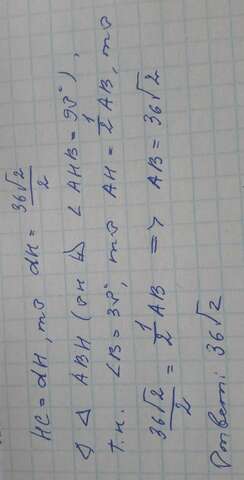 HC = dH, то dH = 36√2/2
△ ABH (он ⊾ ∠AHB = 90°),
т.к. ∠B = 30°, то AH = 1/2 AB, то
36√2/2 = 1/2 AB => AB = 36√2
Ответ: 36√2